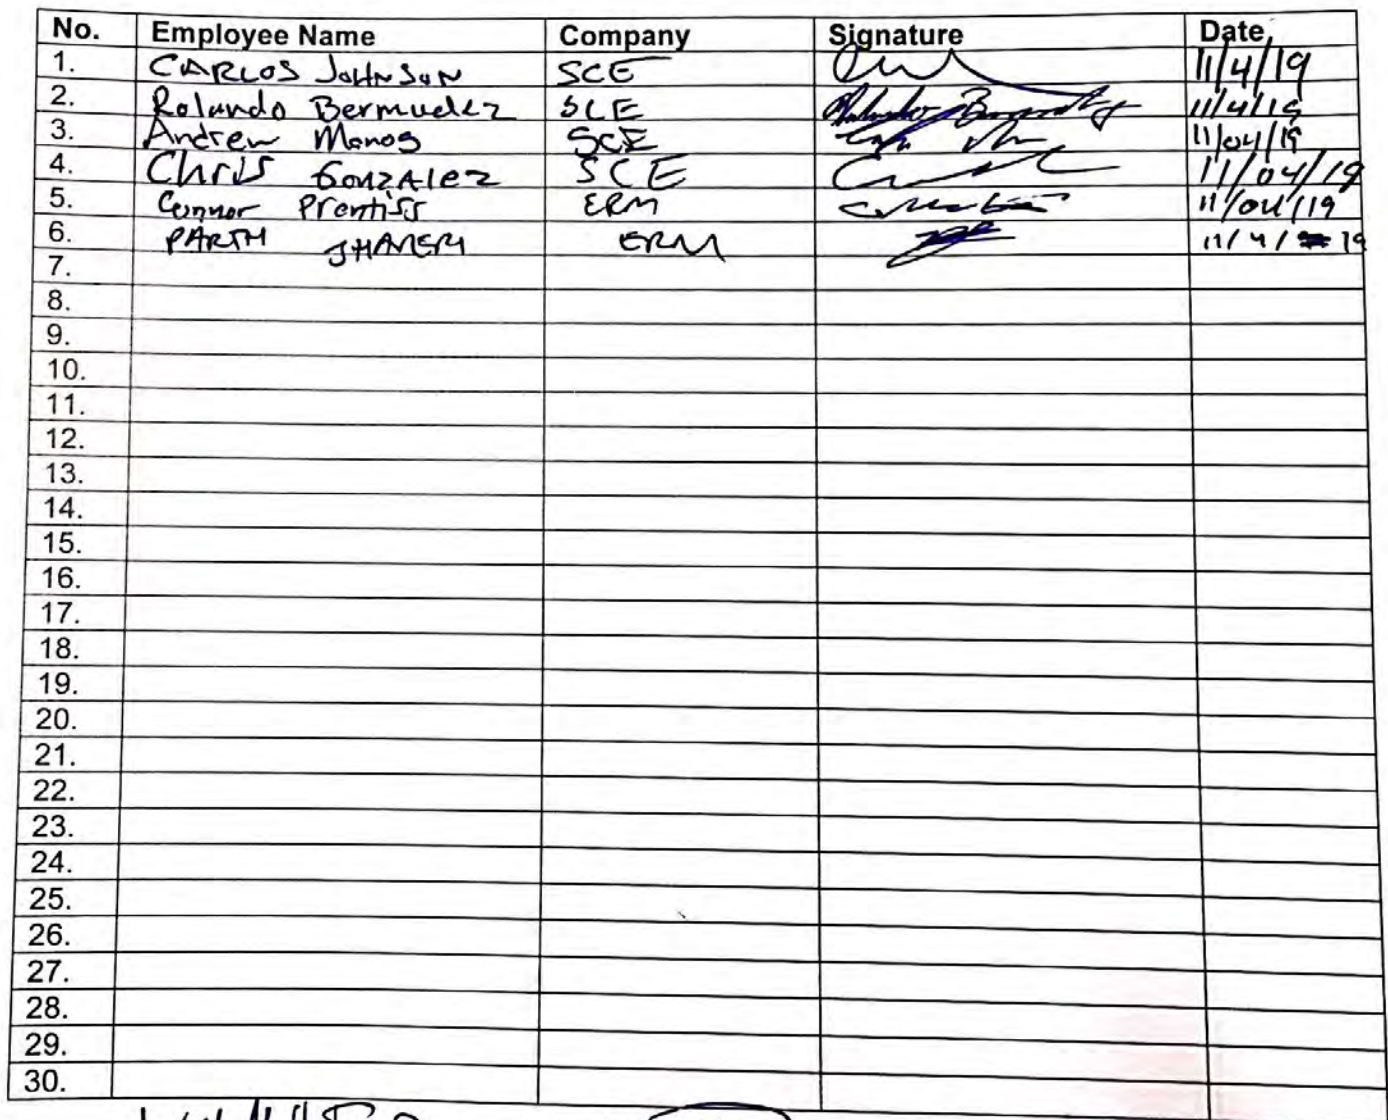 No. Employee Name Company Signature Date
1. CARLOS JOHNSON SCE 11/4/19
2. Rolando Bermudez SCE 11/4/19
3. Andrew Manos SCE 11/04/19
4. Chris GONZALEZ SCE 11/04/19
5. Connor Prentiss ERM 11/04/19
6. PARTH JHAVERI ERM 11/4/19
7.
8.
9.
10.
11.
12.
13.
14.
15.
16.
17.
18.
19.
20.
21.
22.
23.
24.
25.
26.
27.
28.
29.
30.